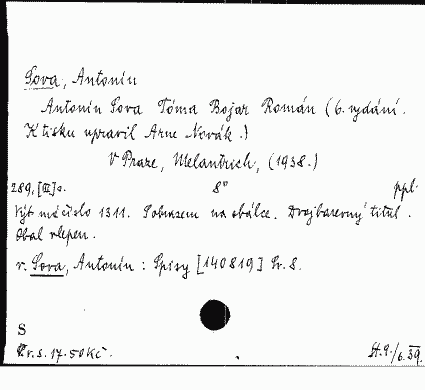 Sova, Antonín
Antonín Sova Tóma Bojar Román (6. vydání.
K tisku upravil Arne Novák.)
V Praze, Melantrich, (1938.)
289, [III] s. 8° ppl.
Výt. má číslo 1311. S obrazem na obálce. Dvojbarevný titul.
Obal vlepen.
v. Sova, Antonín: Spisy [140819] Sv. 8.
S
Kr. s. 17.50 Kč.
St. 9./6. 39.